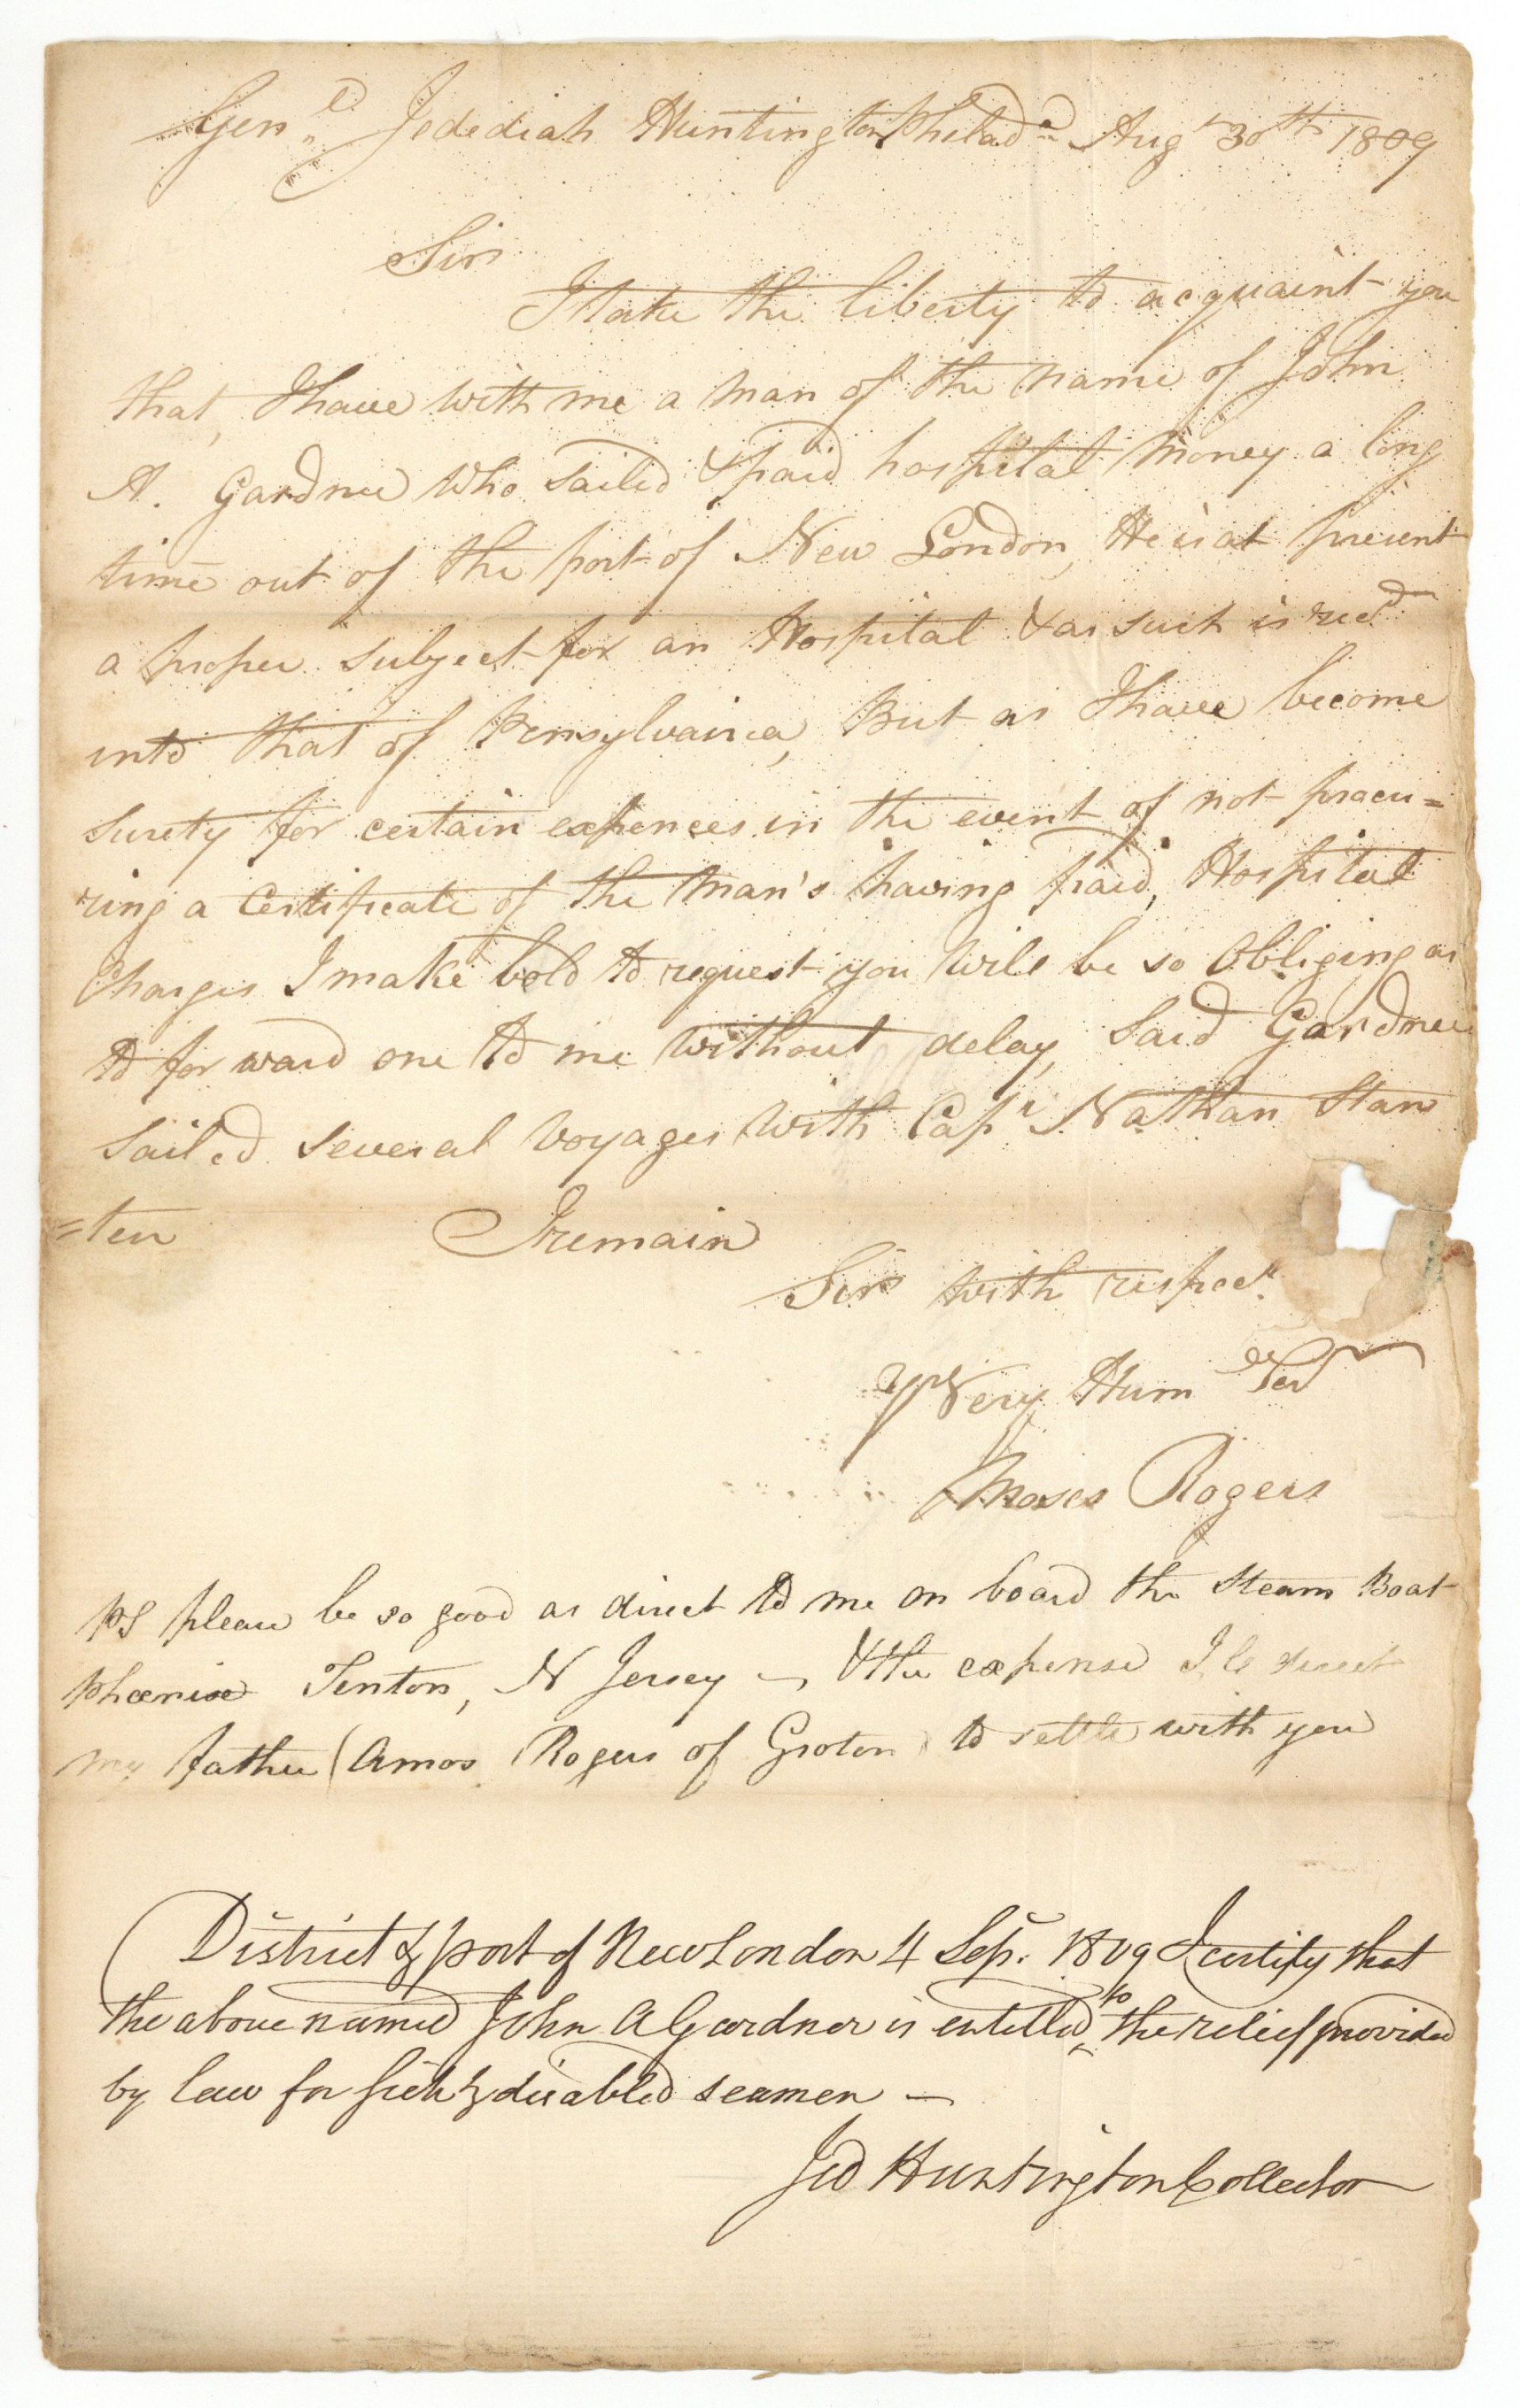 Genl. Jedediah Huntington Philada Augt 30th 1809
Sir
I take the liberty to acquaint you
that, I have with me a man of the name of John
A. Gardner who sailed & paid hospital money a long
time out of the port of New London, He is at present
a proper subject for an Hospital & as such is recd
into that of Pensylvainea, But as I have become
surety for certain expences in the event of not procu=
ring a Certificate of the man's having paid, Hospital
Charges I make bold to request you will be so Obliging as
to forward one to me without delay, Said Gardner
sailed several voyages with Capt Nathan Stan
=ten
I remain
Sir with respect
Yr Very Humle Ser
Moses Rogers
PS please be so good as direct to me on board the Steam Boat
Phoenixe Tenton, N Jersey — & the expense I le direct
my father (Amos Rogers of Groton) to settle with you
District & port of New London 4 Sepr. 1809 I certify that
the above named John A Gardner is entitled to the relief provided
by law for sick & disabled seamen —
Jed Huntington Collector